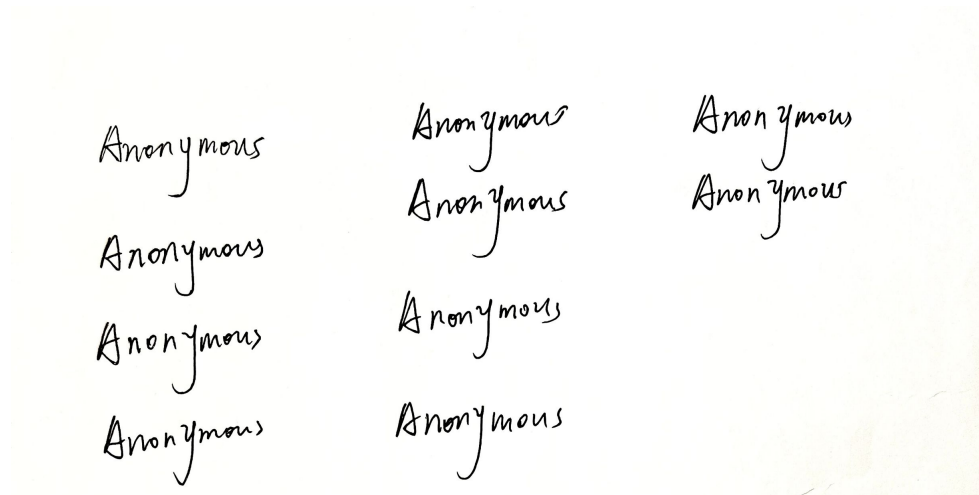 Anonymous
Anonymous
Anonymous
Anonymous
Anonymous
Anonymous
Anonymous
Anonymous
Anonymous
Anonymous